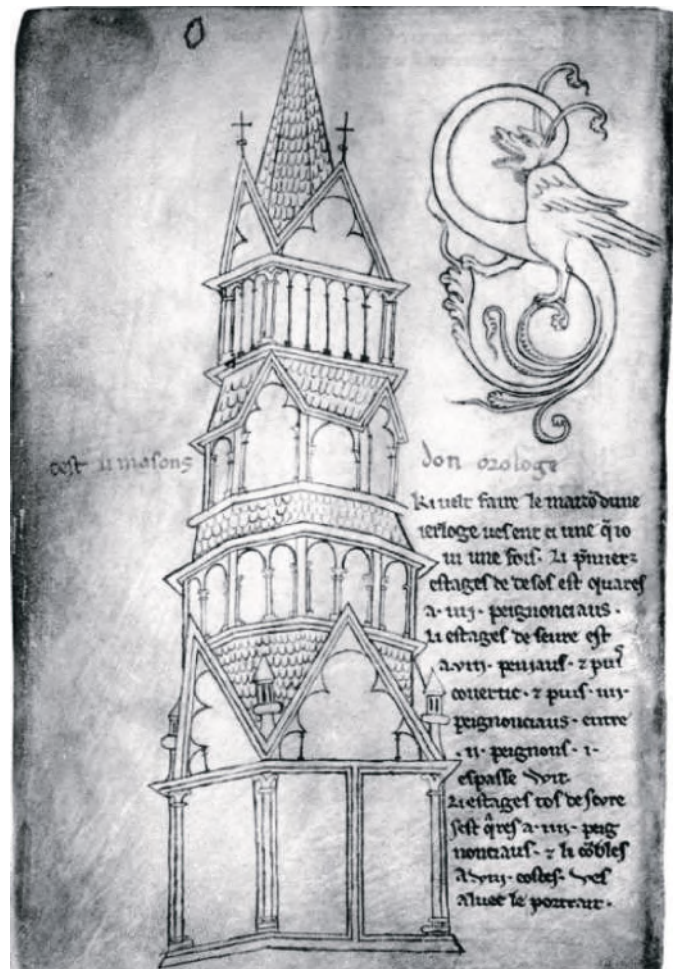 cest li masons don orologe
Ki velt faire le maizō dune
ierloge ves ent ci une q̄ io
vi une fois. Li p̄miers
estages de desos est quares
a .iiij. peignonciaus.
Li estages de seure est
a .viij. peniaus. ⁊ puis
covertic. ⁊ puis .iiij.
peignonciaus. entre
.ij. peignons .i.
espasse wit.
Li estages tos de seure
sest q̄res a .iiij. peig
nonciaus. ⁊ li cōbles
a .viij. costes. ves
aluec le portrait.